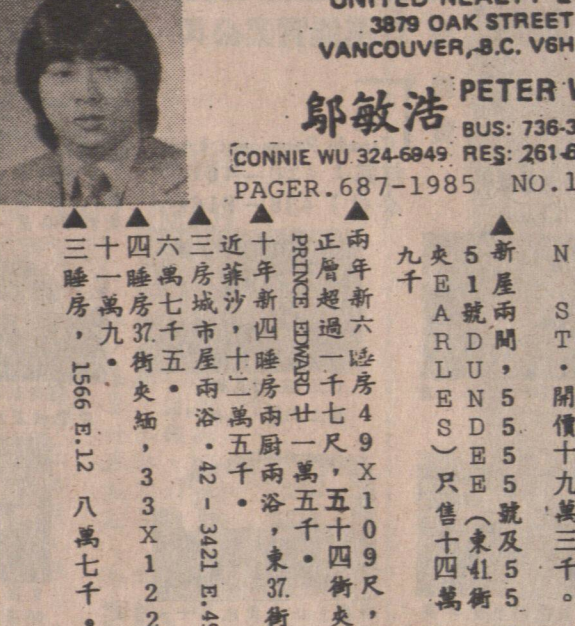 UNITED REALTY
3879 OAK STREET
VANCOUVER, B.C. V6H
鄔敏浩 PETER W
BUS: 736-3
CONNIE WU 324-6949 RES: 261-6
PAGER.687-1985 NO.1
N ST・開價十九萬三千。
▲新屋兩間，5555號及55
51號DUNDEE（東41街
夾EARLES）只售十四萬
九千
▲兩年新六睡房49X109尺，
正層超過一千七尺，五十四街夾
PRINCE EDWARD 廿一萬五千・
▲十年新四睡房兩厨兩浴，東37.街
近菲沙，十二萬五千・
▲三房城市屋兩浴・42 - 3421 E.49
六萬七千五・
▲四睡房37.街夾緬，33X122
十一萬九・
▲三睡房，1566 E.12 八萬七千・